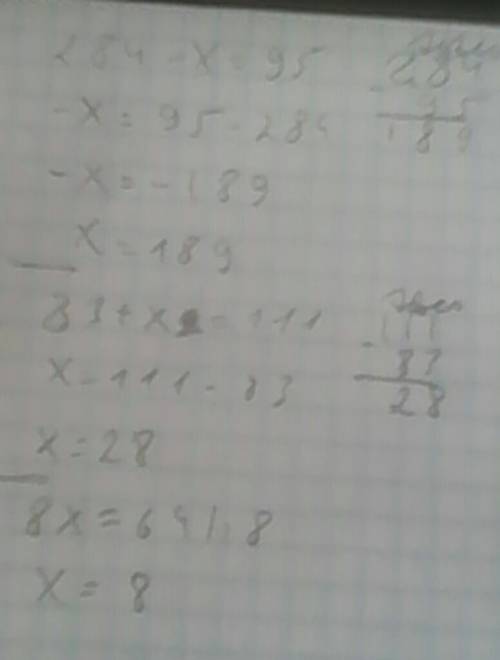 284 - x = 95
-x = 95 - 284
-x = -189
x = 189
284
- 95
189
83 + x = 111
x = 111 - 83
x = 28
111
- 83
28
8x = 64 |:8
x = 8